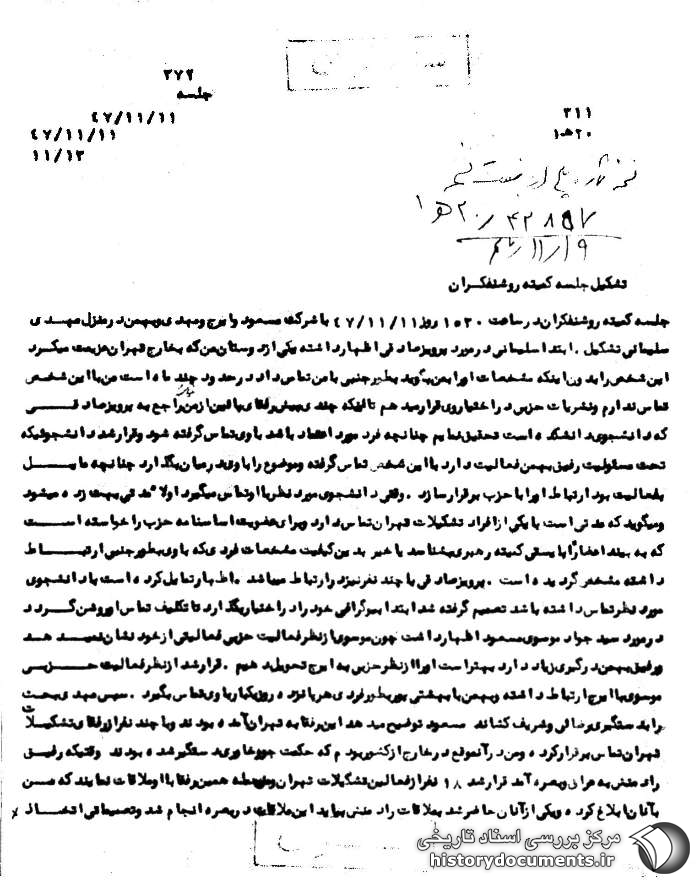 ۳۷۹
جلسه
۴۷/۱۱/۱۱
۴۷/۱۱/۱۱
۱۱/۱۳
۳۱۱
۲۰ﻫ۱
۲۰ﻫ۱ / ۴۲۸۵۷
تشکیل جلسه کمیته روشنفکران
جلسه کمیته روشنفکران در ساعت ۱۵۳۰ روز ۴۷/۱۱/۱۱ با شرکت مسعود و ایرج و مهدی و بهمن در منزل مهدی
سلیمانی تشکیل . ابتدا سلیمانی در مورد پرویز صادقی اظهار داشته یکی از دوستان من که بخارج تهران عزیمت میکرد
این شخص را بدون اینکه مشخصات او را بمن بگوید بطور جنبی با من تماس داد در حدود چند ماه است من با این شخص
تماس ندارم و نشریات حزبی در اختیار وی قرار میدهم تا اینکه چندی پیش رفقای بالا از من راجع به پرویز صادقی
که دانشجوی دانشکده است تحقیق نمایم چنانچه فرد مورد اعتماد باشد با وی تماس گرفته شود و قرار شد دانشجوئیکه
تحت مسئولیت رفیق بهمن فعالیت دارد با این شخص تماس گرفته و موضوع را با وی در میان بگذارد چنانچه مایل
بفعالیت بود ارتباط او را با حزب برقرار سازد . وقتی دانشجوی مورد نظر با او تماس میگیرد اولا مدتی بهت زده میشود
و میگوید که مدتی است با یکی از افراد تشکیلات تهران تماس دارد و برای عضویت اساسنامه حزب را خواسته است
که به بیند اعضا را بایستی کمیته رهبری بشناسد یا خیر بدین کیفیت مشخصات فردی که با وی بطور جنبی ارتباط
داشته مشخص گردیده است . پرویز صادقی با چند نفر نیز در ارتباط میباشد . اظهار تمایل کرده است با دانشجوی
مورد نظر تماس داشته باشد تصمیم گرفته شد ابتدا بیوگرافی خود را در اختیار بگذارد تا تکلیف تماس او روشن گردد
در مورد سید جواد موسوی مسعود اظهار داشت چون موسوی از نظر فعالیت حزبی فعالیتی از خود نشان نمیدهد
و رفیق بهمن درگیری زیاد دارد بهتر است او را از نظر حزبی به ایرج تحویل دهیم . قرار شد از نظر فعالیت حزبی
موسوی با ایرج ارتباط داشته و بهمن با بهشتی پور بطور فردی هر پانزده روز یکبار با وی تماس بگیرد . سپس مهدی بحث
را به دستگیری رضائی و شریف کشاند مسعود توضیح میدهد این رفقا به تهران آمده بودند و با چند نفر از رفقای تشکیلات
تهران تماس برقرار کرده و من در آنموقع در خارج از کشور بودم که حکمت جو و خاوری دستگیر شده بودند وقتیکه رفیق
رادمنش به عراق و بصره آمد قرار شد ۱۸ نفر از فعالین تشکیلات تهران همین رفقا با او ملاقات نمایند که من
بآنان ابلاغ کرده و یکی از آنان حاضر شد بملاقات رادمنش بیاید این ملاقات در بصره انجام شد و تصمیماتی اتخاذ
مرکز بررسی اسناد تاریخی
historydocuments.ir